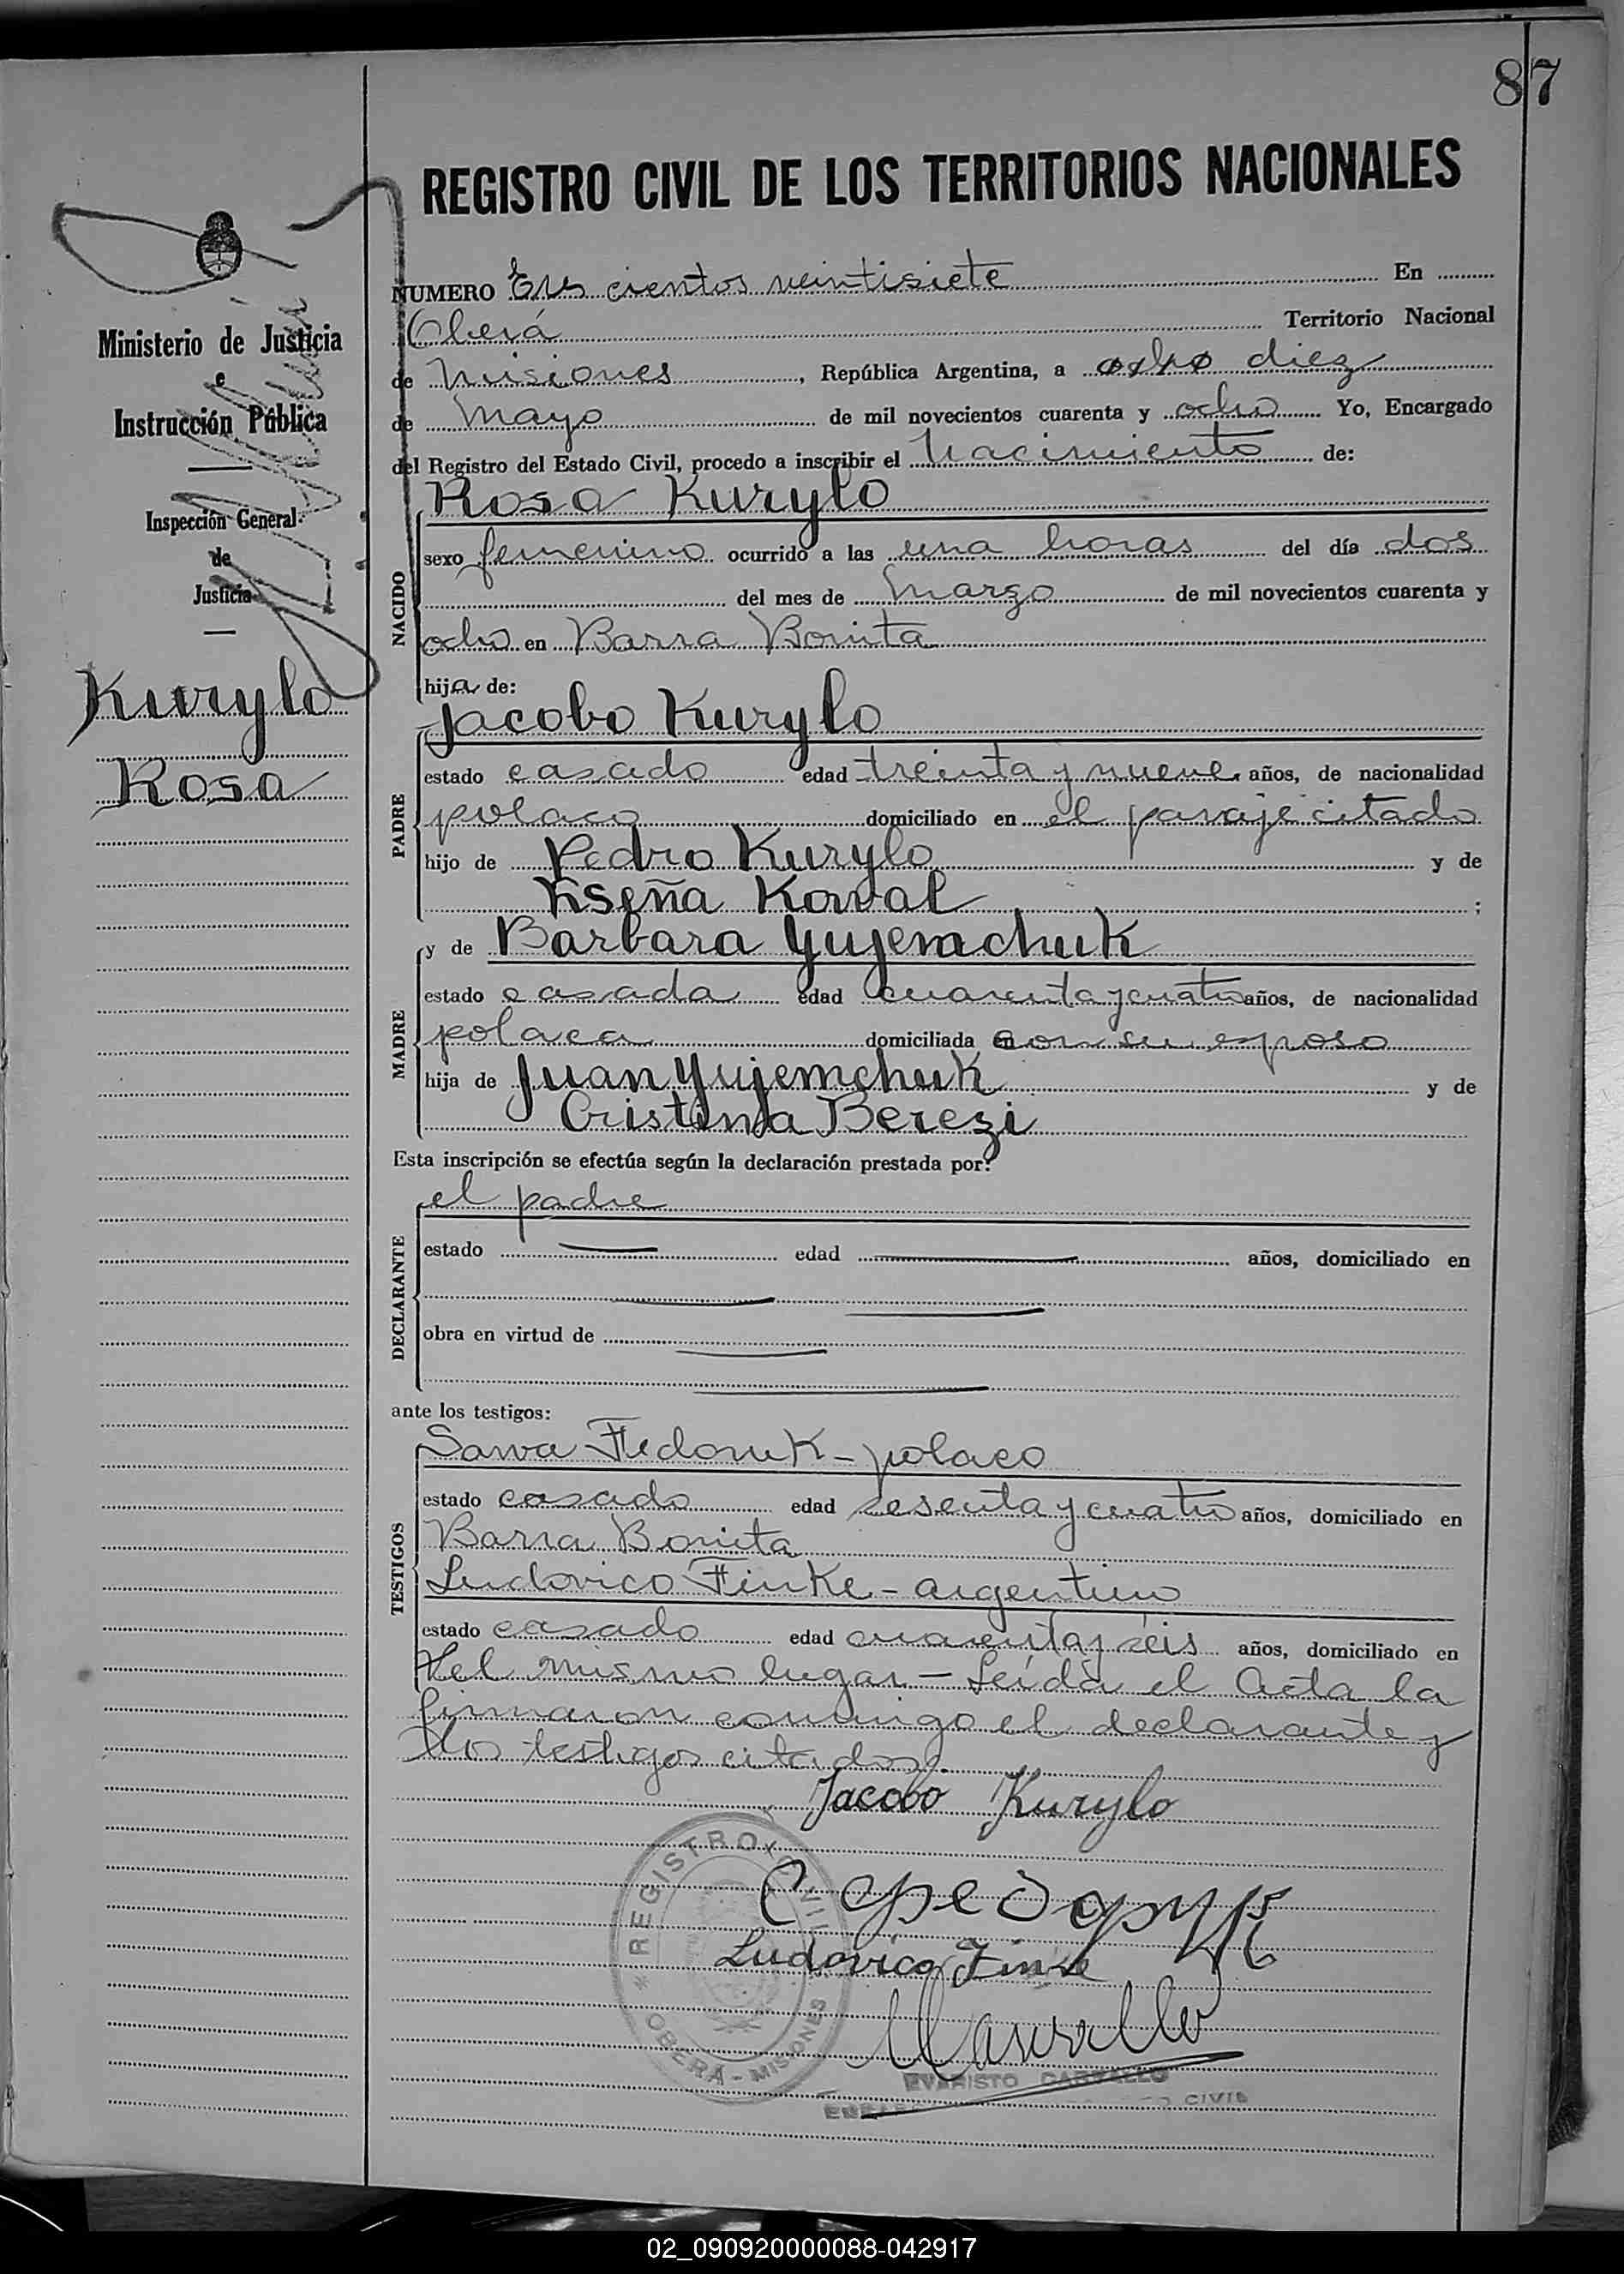 87
REGISTRO CIVIL DE LOS TERRITORIOS NACIONALES
NUMERO Tres cientos veintisiete En
Oberá Territorio Nacional
de Misiones, República Argentina, a ocho diez
de Mayo de mil novecientos cuarenta y ocho Yo, Encargado
del Registro del Estado Civil, procedo a inscribir el Nacimiento de:
Ministerio de Justicia
e
Instrucción Pública
Inspección General
de
Justicia
Kurylo
Rosa
NACIDO
Rosa Kurylo
sexo femenino ocurrido a las una horas del día dos
del mes de Marzo de mil novecientos cuarenta y
ocho en Barra Bonita
hija de:
PADRE
Jacobo Kurylo
estado casado edad treinta y nueve años, de nacionalidad
polaco domiciliado en el paraje citado
hijo de Pedro Kurylo y de
Kseña Kowal ;
MADRE
y de Barbara Yujemchuk
estado casada edad cuarenta y cuatro años, de nacionalidad
polaca domiciliada con su esposo
hija de Juan Yujemchuk y de
Cristina Berezi
Esta inscripción se efectúa según la declaración prestada por:
DECLARANTE
el padre
estado edad años, domiciliado en
obra en virtud de
ante los testigos:
TESTIGOS
Sawa Fedoruk - polaco
estado casado edad sesenta y cuatro años, domiciliado en
Barra Bonita
Ludovico Finke - argentino
estado casado edad cuarenta y seis años, domiciliado en
el mismo lugar - Leída el Acta la
firmaron conmigo el declarante y
los testigos citados.
Jacobo Kurylo
С Федорук
Ludovico Finke
REGISTRO CIVIL
* OBERÁ - MISIONES
EVARISTO CARVALLO
CIVIL
02_090920000088-042917